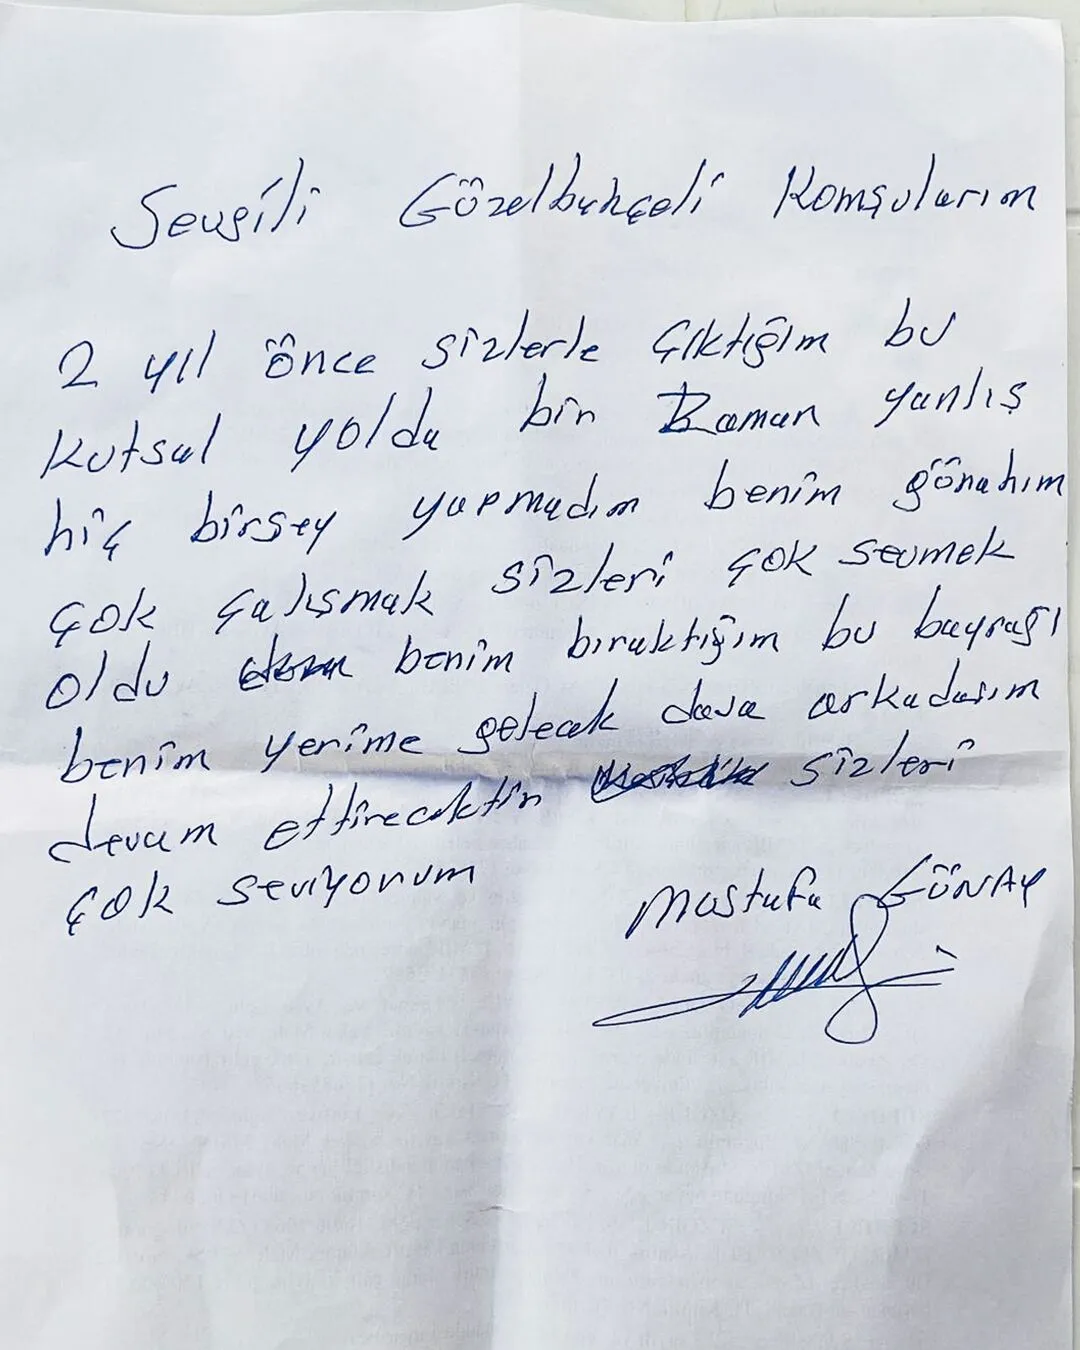 Sevgili Güzelbahçeli Komşularım
2 yıl önce sizlerle çıktığım bu
kutsal yolda bin zaman yanlış
hiç birşey yapmadım benim günahım
çok çalışmak sizleri çok sevmek
oldu benim bıraktığım bu bayrağı
benim yerime gelecek dava arkadaşım
devam ettirecektir sizleri
çok seviyorum
Mustafa GÜNAY